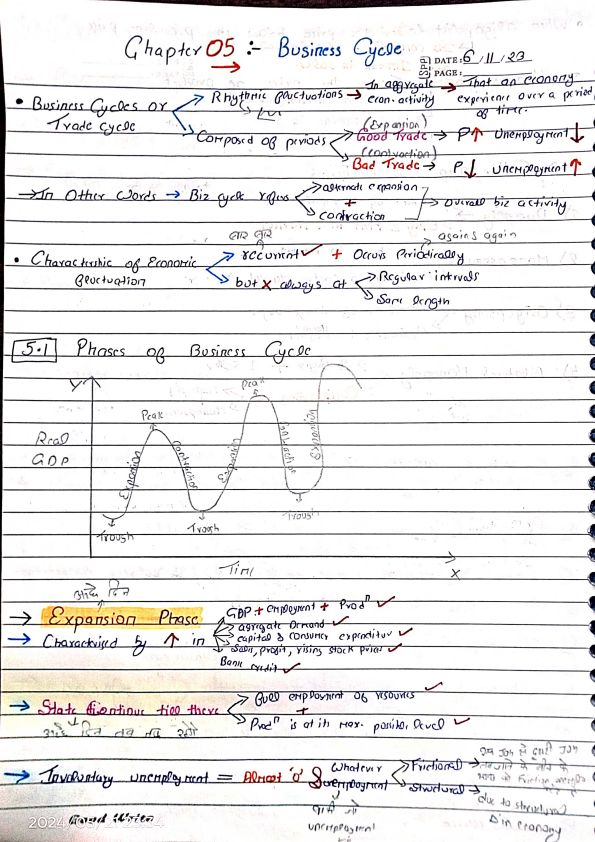 Chapter 05 :- Business Cycle
DATE: 6/11/23
PAGE:
• Business Cycles or Trade Cycle
Rhythmic fluctuations → In aggregate econ. activity → That an economy experience over a period of time.
Composed of periods
(Expansion)
Good Trade → P↑ Unemployment ↓
(Contraction)
Bad Trade → P↓ unemployment ↑
→ In Other Words → Biz cycle refers
alternate expansion
+
contraction
→ Overall biz activity
बार बार
again & again
• Characteristic of Economic fluctuation
recurrent ✓ + Occurs Periodically
but × always at
Regular intervals
Same length
5.1 Phases of Business Cycle
Y
Real GDP
Peak
Peak
Expansion
Contraction
Expansion
Contraction
Expansion
Trough
Trough
Trough
Time
X
→ Expansion Phase
→ Characterised by ↑ in
GDP + employment + Prodⁿ ✓
aggregate Demand ✓
capital & consumer expenditure ✓
Sales, profit, rising stock prices ✓
Bank credit ✓
→ State continue till there
Full employment of resources ✓
+
Prodⁿ is at its Max. possible level ✓
→ Involuntary unemployment = Almost '0' & Whatever unemployment
Frictional →
Structural →
due to structural
Δ in economy
unemployment
2024